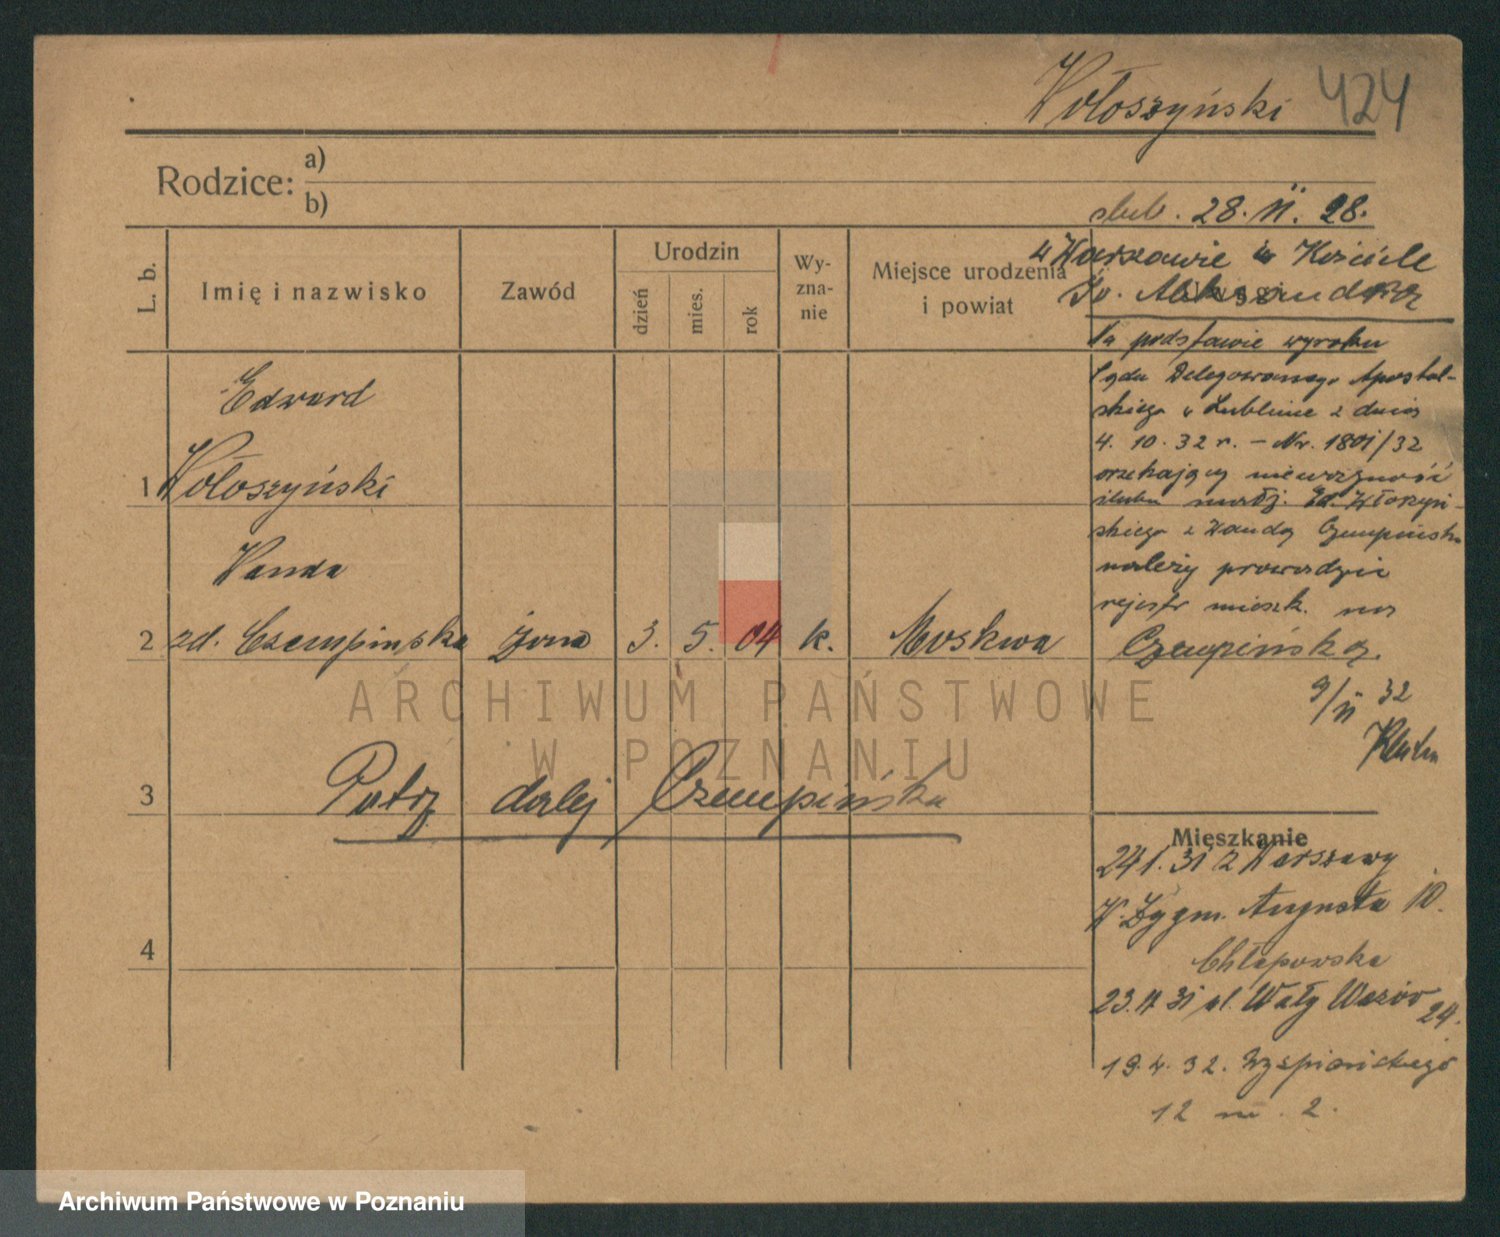 Wołoszyński 424
Rodzice: a)
b)
ślub. 28. II. 28.
w Warszawie w Kościele
Św. Aleksandra
L. b.
Imię i nazwisko
Zawód
Urodzin
dzień
mies.
rok
Wy-
zna-
nie
Miejsce urodzenia
i powiat
Uwagi
Na podstawie wyroku
Sądu Delegowanego Apostol-
skiego w Lublinie z dnia
4. 10. 32 r. – Nr. 1801/32
orzekający nieważność
ślubu małż. Ed. Włoszyń-
skiego z Wandą Czempińską
należy prowadzić
rejestr mieszk. na
Czempińską.
9/II 32
Edward
1 Wołoszyński
Wanda
2 zd. Czempińska żona 3. 5. 04 k. Moskwa
3 Patrz dalej Czempińska
4
Mieszkanie
24 1. 31 z Warszawy
W. Zygm. Augusta 10.
Chłapowska
23. II 31 ul. Wały Wazów 24.
19. 4. 32. Wyspiańskiego
12 m. 2.
ARCHIWUM PAŃSTWOWE
W POZNANIU
Archiwum Państwowe w Poznaniu